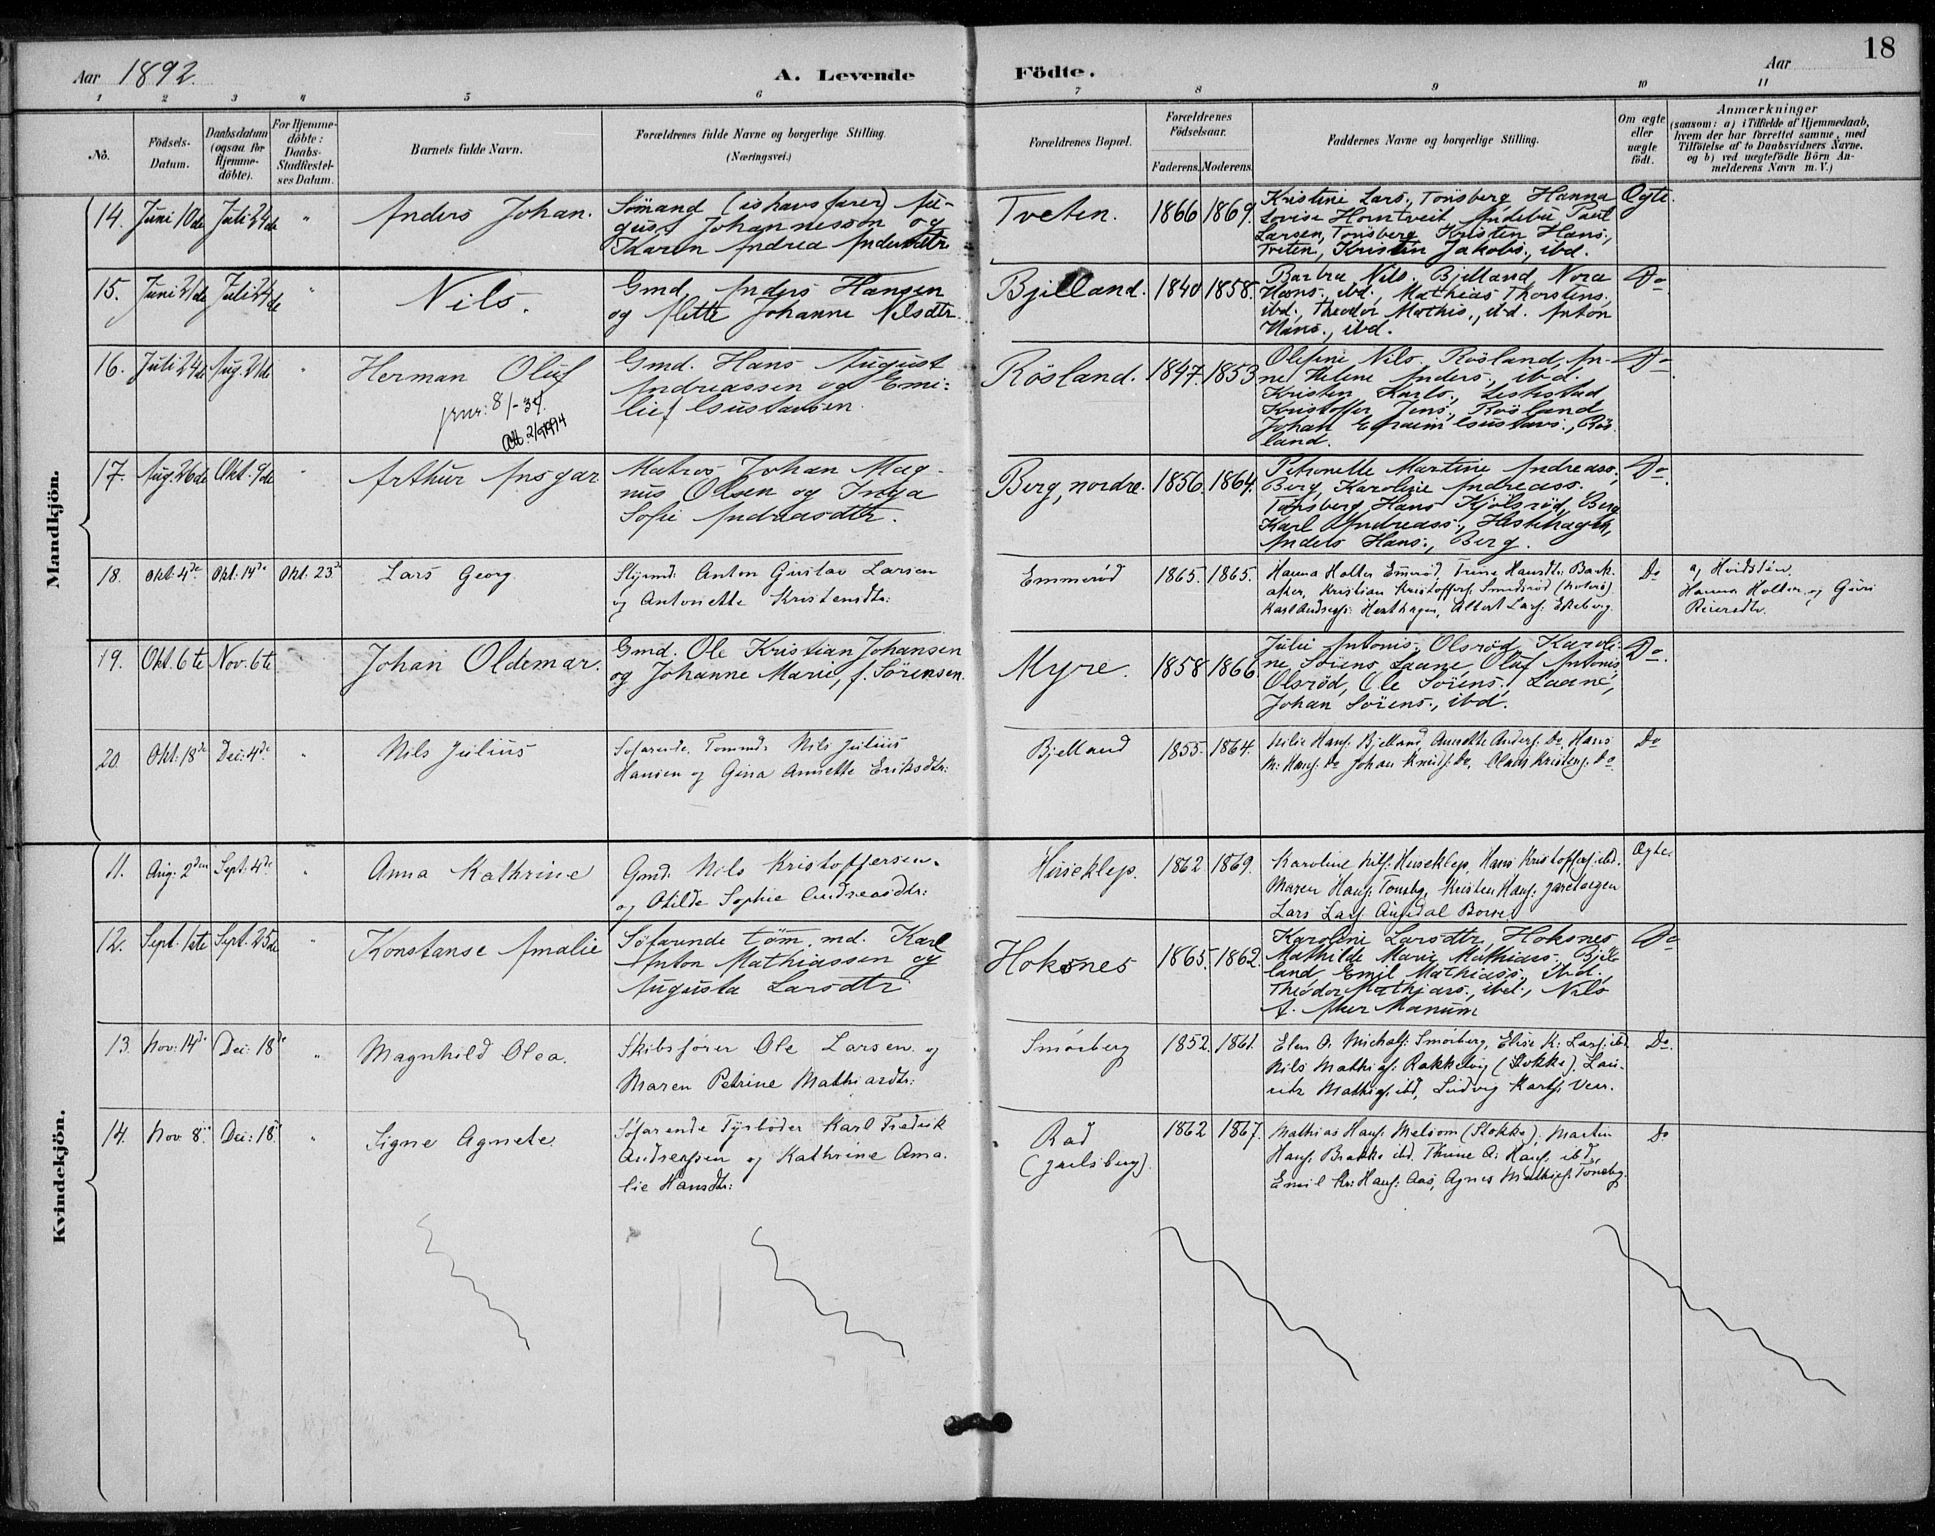 18
Aar 1892. A. Levende Födte. Aar
1 2 3 4 5 6 7 8 9 10 11
No. Födsels-Datum. Daabsdatum (ogsaa for Hjemmedöbte). For Hjemmedöbte: Daabs-Stadfæstelses Datum. Barnets fulde Navn. Forældrenes fulde Navne og borgerlige Stilling. (Næringsvei.) Forældrenes Bopæl. Forældrenes Födselsaar. Faderens. Moderens. Faddernes Navne og borgerlige Stilling. Om ægte eller uægte födt. Anmærkninger (saasom: a) i Tilfælde af Hjemmedaab, hvem der har forrettet samme, med Tilföielse af to Daabsvidners Navne. og b) ved uægtefödte Börn Anmelderens Navn m. V.)
Mandkjön.
14. Juni 10de Juli 24de " Anders Johan. Sömand (ishavsfarer) Au-
gust Johannesson og
Karen Andrea Andersdtr.
Tveten. 1866 1869. Kristine Lars., Tönsberg, Hanna
Lovise Homtveit, Andebu, Paul
Larsen, Tönsberg, Kristen Hans.,
Tveten, Kristen Jakobs., ibd.
Ægte.
15. Juni 21de Juli 24de " Nils. Gmd. Anders Hansen
og Mette Johanne Nilsdtr.
Bjelland. 1840 1858. Barbra Nils. Bjelland, Nora
Hans., ibd., Mathias Thorstens.,
ibd., Theodor Mathis., ibd. Anton
Hans., ibd.
Do
16. Juli 24de Aug. 21de " Herman Oluf Gmd. Hans August
Andreassen og Emi-
lie f. Gustavsen.
Rösland. 1847. 1853 Olefine Nils., Rösland, An-
ne Helene Anders., ibd.
Kristen Karls.,
Kristoffer Jens., Rösland
Johan Efraim Gustavs., Rös-
land.
Do
17. Aug. 26de Okt. 9de " Arthur Ansgar Matros Johan Mag-
nus Olsen og Inga
Sofie Andreasdtr.
Berg, nordre. 1856. 1864. Petronelle Martine Andreass.,
Berg, Karoline Andreass.
Tönsberg, Hans Kjölsröd, Berg
Karl Andreass., Hesthagen,
Anders Hans., Berg.
Do
18. Okt. 4de Okt. 14de Okt. 23de Lars Georg. Styrmd. Anton Gustav Larsen
og Antonette Kristensdtr:
Emmeröd 1865. 1865. Hanna Holter Emmeröd, Trine Hansdtr.
Kristian Kristoffers.
Karl Andreass: Hesthagen, Albert Lars: Ekeberg.
Do a,
Hanna Holter og
19. Okt. 6te Nov. 6te " Johan Oldemar. Gmd. Ole Kristian Johansen
og Johanne Marie, f. Sörensen.
Myre. 1858 1866. Julie Antonis. Olsröd, Karoli-
ne Sörens. Laane, Olaf Antonis.
Olsröd, Ole Sörens., Laane,
Johan Sörens., ibd.
Do.
20. Okt: 18de Dec: 4de " Nils Julius Söfarende Tömmd. Nils Julius
Hansen og Gina Annette Eriksdtr:
Bjelland 1855. 1864. Hans: Bjelland, Annette Anders: Do, Hans
M: Hans: Do Johan Knuds: Do, Claus Kristens: Do.
Do
Kvindekjön.
11. Aug. 2den Sept: 4de " Anna Kathrine Gmd: Nils Kristoffersen
og Otilde Sophie Andreasdtr:
1862 1869. Karoline Nils: Hans Kristoffers: ibd.
Maren Hans: Tönsbg, Kristen Hans:
Lars Lars:
Ægte.
12. Sept. 1ste Sept. 25de " Konstanse Amalie Söfarende töm.md. Karl
Anton Mathiassen og
Augusta Larsdtr
Hoksnes 1865. 1862. Karoline Larsdtr., Hoksnes
Mathilde Marie Mathiass., Bjel-
land, Emil Mathiass., ibd.,
Theodor Mathiass., ibd., Nils
A. Manum
Do
13. Nov: 14de Dec: 18de " Magnhild Olea. Skibsförer Ole Larsen og
Maren Petrine Mathiasdtr:
Smörberg 1852. 1861. Elen A: Michals: Smörberg, Elise K: Lars: ibd.
Nils Mathias: Rakkelvig (Stokke). Lau-
rits Mathias: ibd, Ludvig
Do.
14. Nov. 8. Dec: 18 " Signe Agnete. Söfarende Fyrböder Karl Fredrik
Andreassen og Kathrine Ama-
lie Hansdtr:
Rad
(Jarlsberg). 1862 1867. Mathias Hans: Melsom (Stokke), Martin
Hans: ibd. Thrine A: Hans: ibd,
Emil Kr: Hans: Aas, Agnes Mathias: Tönsbg.
Do